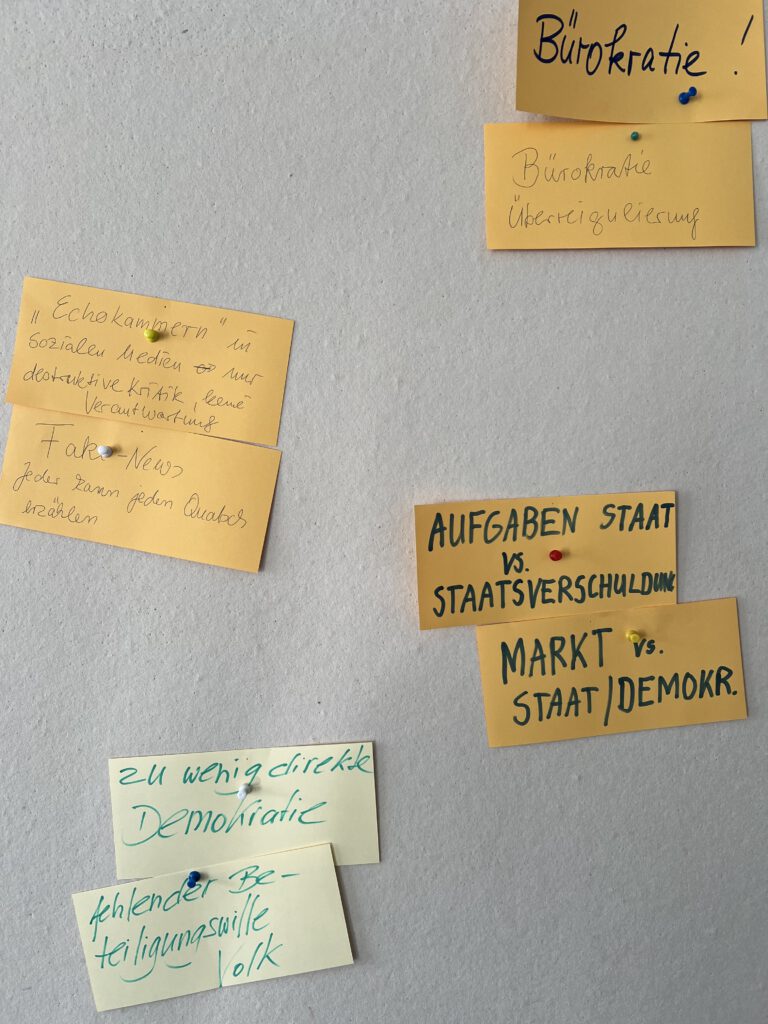 Bürokratie !
Bürokratie
Überreigulierung
„Echokammern" in
sozialen Medien nur
destruktive Kritik, keine
Verantwortung
Fake-News
Jeder kann jeden Quatsch
erzählen
AUFGABEN STAAT
VS.
STAATSVERSCHULDUNG
MARKT vs.
STAAT/DEMOKR.
zu wenig direkte
Demokratie
fehlender Be-
teiligungswille
Volk